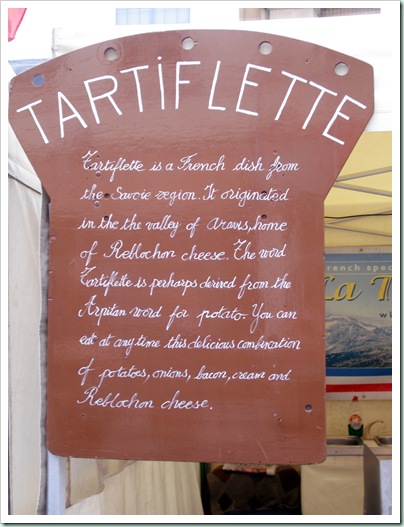 TARTIFLETTE
Tartiflette is a French dish from
the Savoie region. It originated
in the the valley of aravis, home
of Reblochon cheese. The word
Tartiflette is perharps derived from the
Arpitan word for potato. You can
eat at any time this delicious combination
of potatoes, onions, bacon, cream and
Reblochon cheese.
french spec
La T
wi